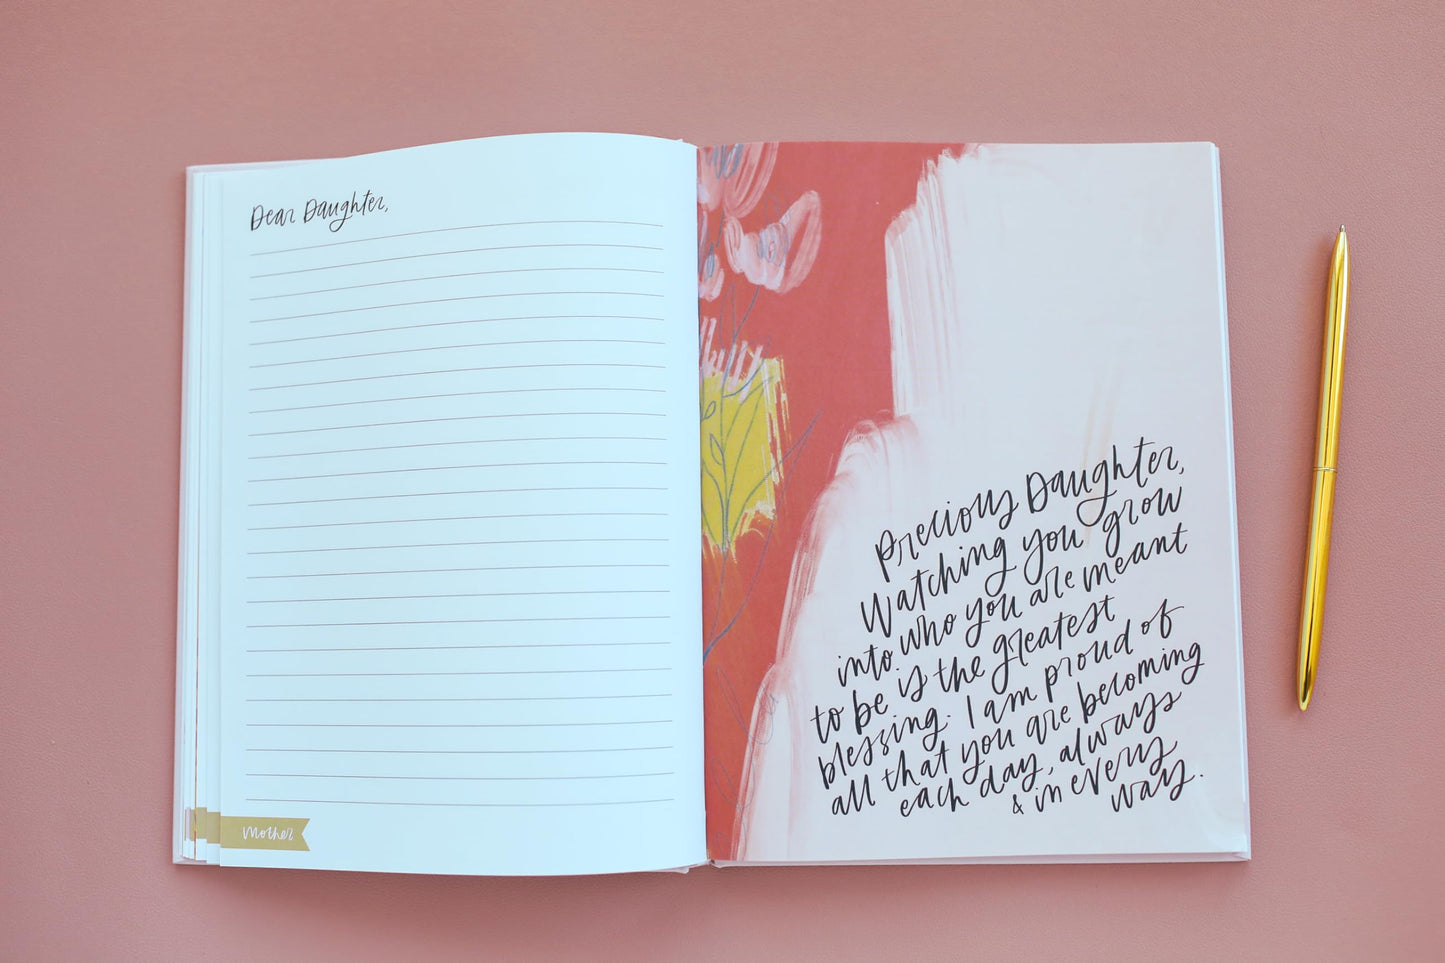 Dear Daughter,
Mother
Precious Daughter,
Watching you grow
into who you are meant
to be is the greatest
blessing. I am proud of
all that you are becoming
each day, always
& in every
way.